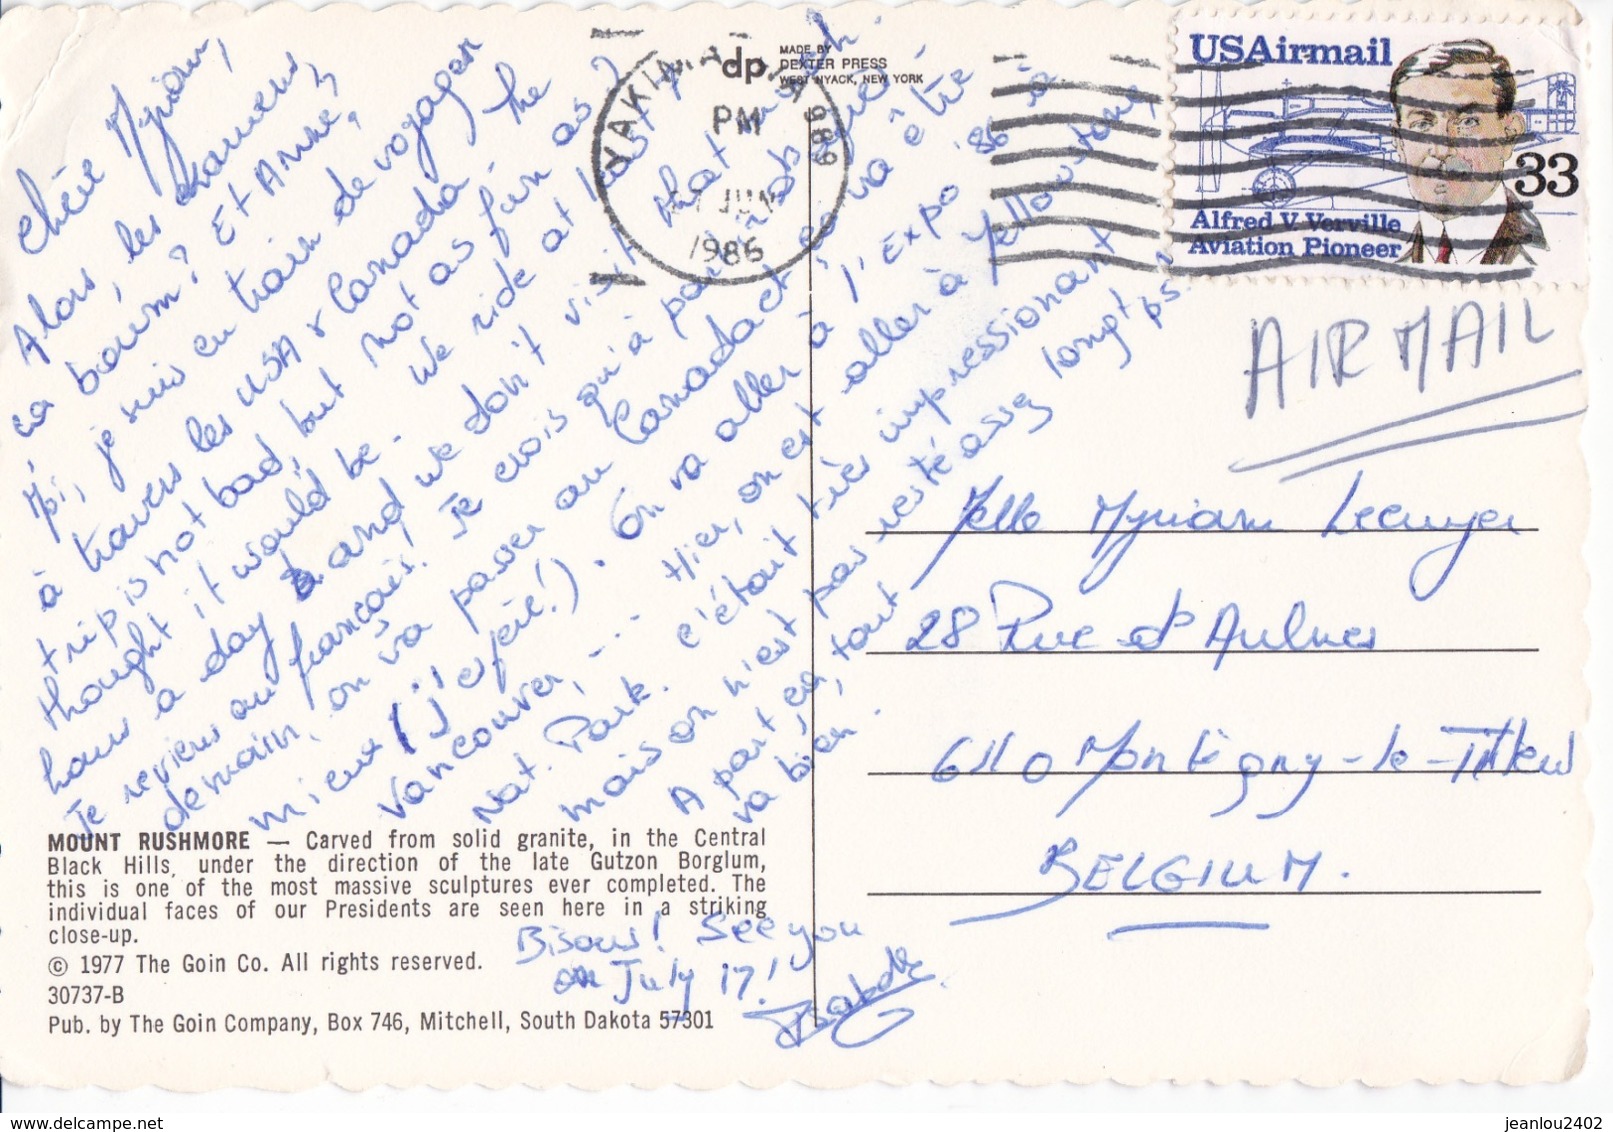 Chère Myriam,
Alors, les examens,
ça boum? Et Anne?
Moi, je suis en train de voyager
à travers les USA & Canada. The
trip is not bad, but not as fun as I
thought it would be. We ride at least 7
hours a day and we don't visit that much.
Je reviens au français. Je crois qu'à partir d'après
demain, on va passer au Canada et ça va être
mieux (j'espère!). On va aller à l'Expo '86 à
Vancouver, ... Hier, on est aller à Yellowstone
Nat. Park. C'était très impressionant
mais on n'est pas resté assez longt ps.
A part ça, tout
va bien.
Bisous! See you
on July 17!
Isabelle
MADE BY
dp DEXTER PRESS
WEST NYACK, NEW YORK
YAKIMA
989
PM
JUN
1986
USAirmail
33
Alfred V. Verville
Aviation Pioneer
AIR MAIL
Melle Myriam
28 Rue d'Aulnes
6110 Montigny-le-Tilleul
BELGIUM.
MOUNT RUSHMORE — Carved from solid granite, in the Central
Black Hills, under the direction of the late Gutzon Borglum,
this is one of the most massive sculptures ever completed. The
individual faces of our Presidents are seen here in a striking
close-up.
© 1977 The Goin Co. All rights reserved.
30737-B
Pub. by The Goin Company, Box 746, Mitchell, South Dakota 57301
jeanlou2402